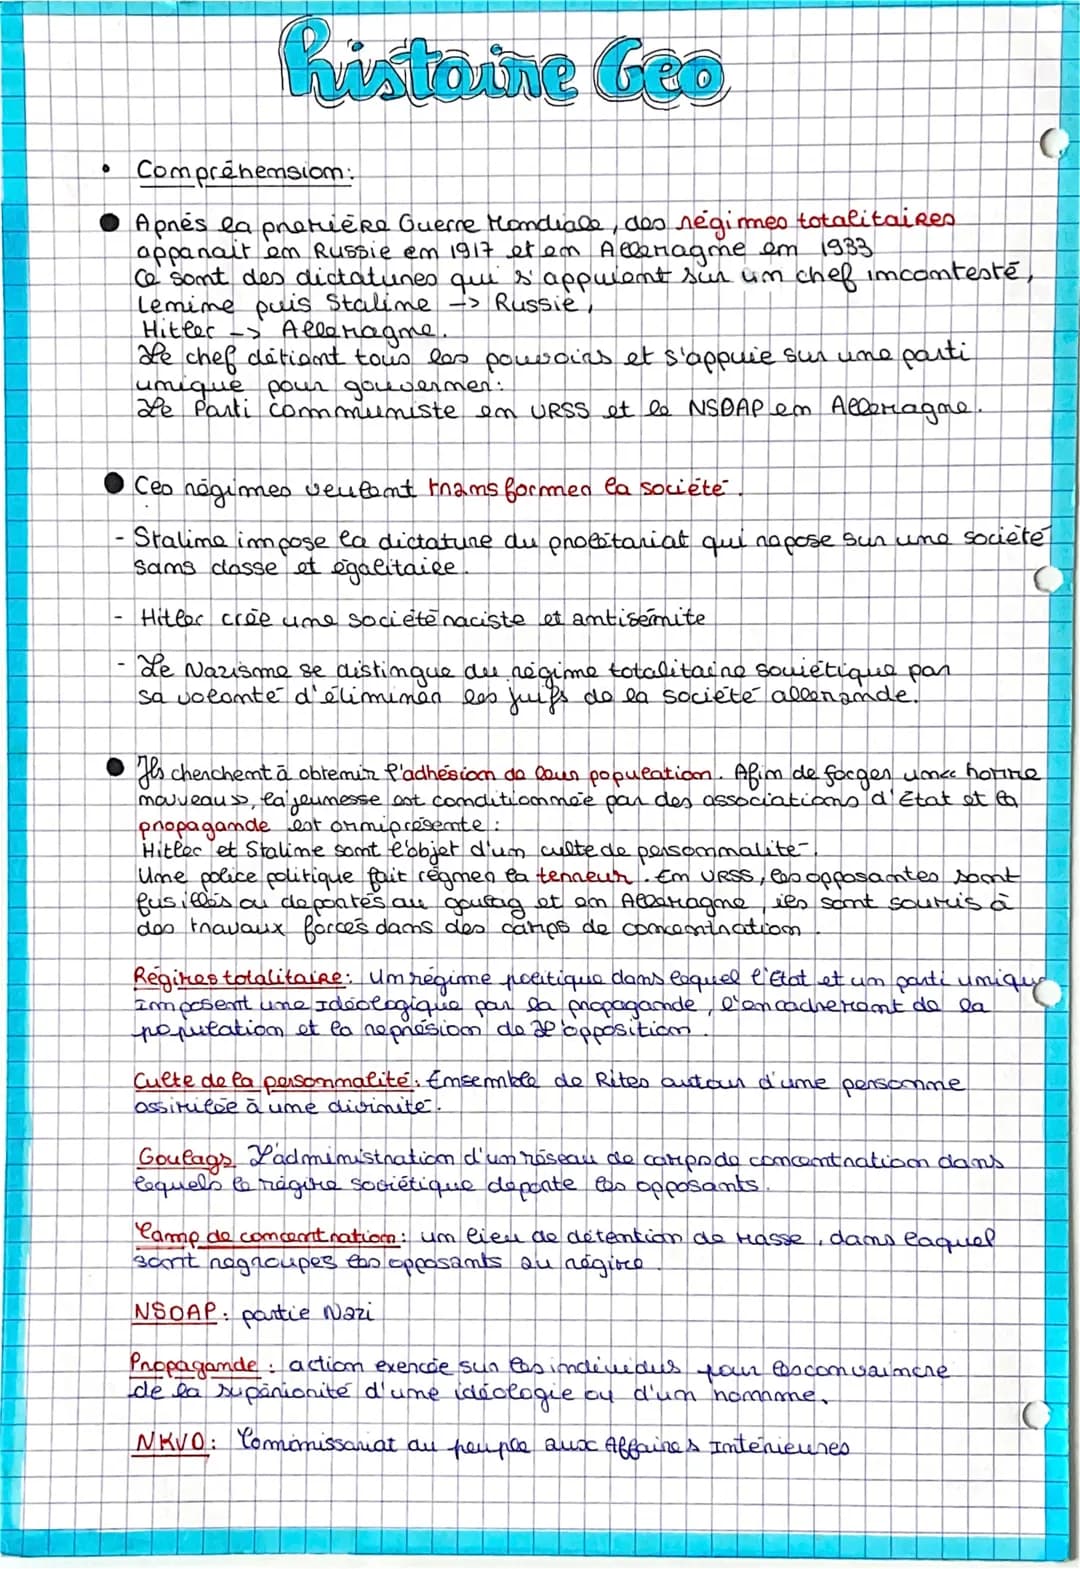 histoire Geo
• Compréhension:
● Après la première Guerre Mondiale, des régimes totalitaires
apparait en Russie en 1917 et en Allemagne en 1933
Ce sont des dictatures qui s'appuient sur un chef incontesté,
Lenine puis Staline -> Russie,
Hitler -> Allemagne.
Le chef détient tous les pouvoirs et s'appuie sur une parti
unique pour gouverner:
Le Parti Communiste en URSS et le NSDAP en Allemagne.
● Ces régimes veulent transformer la société.
- Staline impose la dictature du proletariat qui repose sur une société
sans classe et égalitaire.
- Hitler crée une société raciste et antisémite
- Le Nazisme se distingue du régime totalitaire soviétique par
sa volonté d'éliminer les juifs de la société allemande.
● Ils cherchent à obtenir l'adhésion de leur population. Afin de forger un << homme
nouveau >>, la jeunesse est conditionnée par des associations d'État et la
propagande est omniprésente :
Hitler et Staline sont l'objet d'un culte de personnalité.
Une police politique fait régner la terreur. En URSS, les opposantes sont
fusillés ou deportés au goulag et en Allemagne, ils sont soumis à
des travaux forcés dans des camps de concentration.
Régimes totalitaire: Un régime politique dans lequel l'État et un parti unique
Imposent une Idéologique par la propagande, l'encadrement de la
population et la représion de l'opposition.
Culte de la personnalité: Ensemble de Rites autour d'une personne
assimilée à une divinité.
Goulags L'administration d'un réseau de camps de concentration dans
lequels le régime sociétique deporte les opposants.
Camp de concentration: un lieu de détention de masse, dans laquel
sont regroupes les opposants au régime.
NSDAP: partie Nazi
Propagande : action exercée sur les individus pour les convaincre
de la supériorité d'une idéologie ou d'un homme.
NKVD: Commissariat du peuple aux Affaires Intérieures